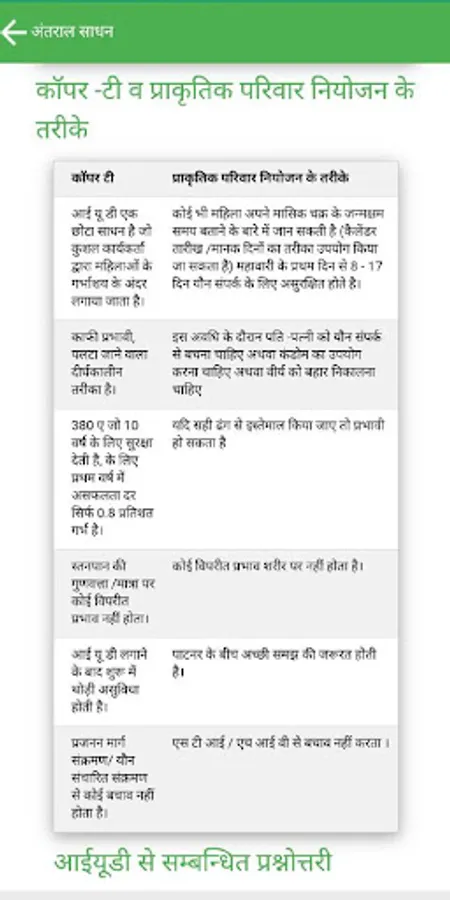 अंतराल साधन
कॉपर -टी व प्राकृतिक परिवार नियोजन के
तरीके
कॉपर टी
प्राकृतिक परिवार नियोजन के तरीके
आई यू डी एक
छोटा साधन है जो
कुशल कार्यकर्ता
द्वारा महिलाओं के
गर्भाशय के अंदर
लगाया जाता है।
कोई भी महिला अपने मासिक चक्र के जन्मक्षम
समय बताने के बारे में जान सकती है (कैलेंडर
तारीख /मानक दिनों का तरीका उपयोग किया
जा सकता है) महावारी के प्रथम दिन से 8 - 17
दिन यौन संपर्क के लिए असुरक्षित होते है।
काफी प्रभावी,
पलटा जाने वाला
दीर्घकालीन
तरीका है।
इस अवधि के दौरान पति -पत्नी को यौन संपर्क
से बचना चाहिए अथवा कंडोम का उपयोग
करना चाहिए अथवा वीर्य को बहार निकालना
चाहिए
380 ए जो 10
वर्ष के लिए सुरक्षा
देती है, के लिए
प्रथम वर्ष में
असफलता दर
सिर्फ 0.8 प्रतिशत
गर्भ है।
यदि सही ढंग से इस्तेमाल किया जाए तो प्रभावी
हो सकता है
स्तनपान की
गुणवत्ता /मात्रा पर
कोई विपरीत
प्रभाव नहीं होता।
कोई विपरीत प्रभाव शरीर पर नहीं होता है।
आई यू डी लगाने
के बाद शुरू में
थोड़ी असुविधा
होती है।
पाटनर के बीच अच्छी समझ की जरूरत होती
है।
प्रजनन मार्ग
संक्रमण/ यौन
संचारित संक्रमण
से कोई बचाव नहीं
होता है।
एस टी आई / एच आई वी से बचाव नहीं करता ।
आईयूडी से सम्बन्धित प्रश्नोत्तरी